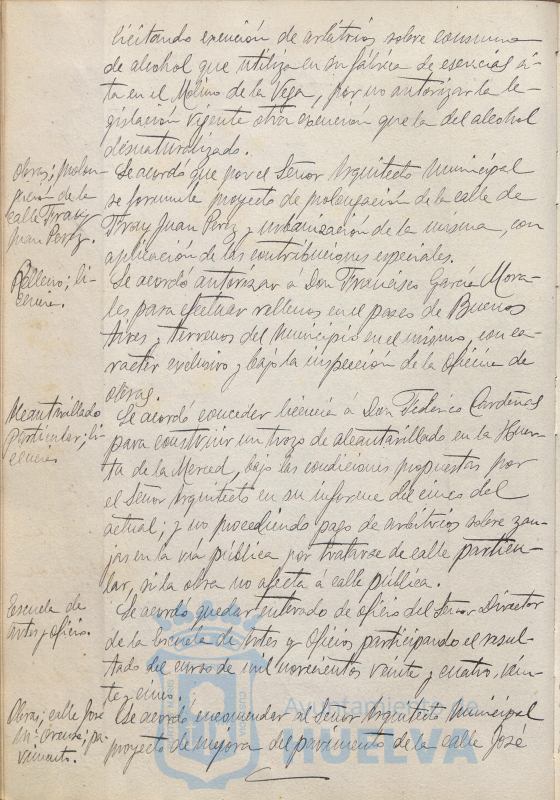 licitando exención de arbitrios sobre consumo
de alcohol que utiliza en su fábrica de esencias si-
ta en el Molino de la Vega, por no autorizar la le-
gislación vigente otra exención que la del alcohol
desnaturalizado.
Obras; prolon-
gación de la
calle Fray
Juan Perez.
Se acordó que por el Señor Arquitecto Municipal
se formule proyecto de prolongación de la calle de
Fray Juan Perez y urbanización de la misma, con
aplicación de las contribuciones especiales.
Relleno; li-
cencia.
Se acordó autorizar á Don Francisco García Mora-
les para efectuar rellenos en el paseo de Buenos
Aires y terrenos del Municipio en el mismo, con ca-
racter exclusivo y bajo la inspección de la Oficina de
obras.
Alcantarillado
particular; li-
cencia.
Se acordó conceder licencia á Don Federico Cardeñas
para construir un trozo de alcantarillado en la Huer-
ta de la Merced, bajo las condiciones propuestas por
el Señor Arquitecto en su informe de cinco del
actual; y no procediendo pago de arbitrios sobre zan-
jas en la vía pública por tratarse de calle particu-
lar, si la obra no afecta á calle pública.
Escuela de
Artes y Oficios.
Se acordó quedar enterado de oficio del Señor Director
de la Escuela de Artes y Oficios participando el resul-
tado del curso de mil novecientos veinte y cuatro, vein-
te y cinco.
Obras; calle José
Mª. Orense; pa-
vimento.
Se acordó encomendar al Señor Arquitecto Municipal
proyecto de mejora del pavimento de la calle José
Ayuntamiento de
HUELVA